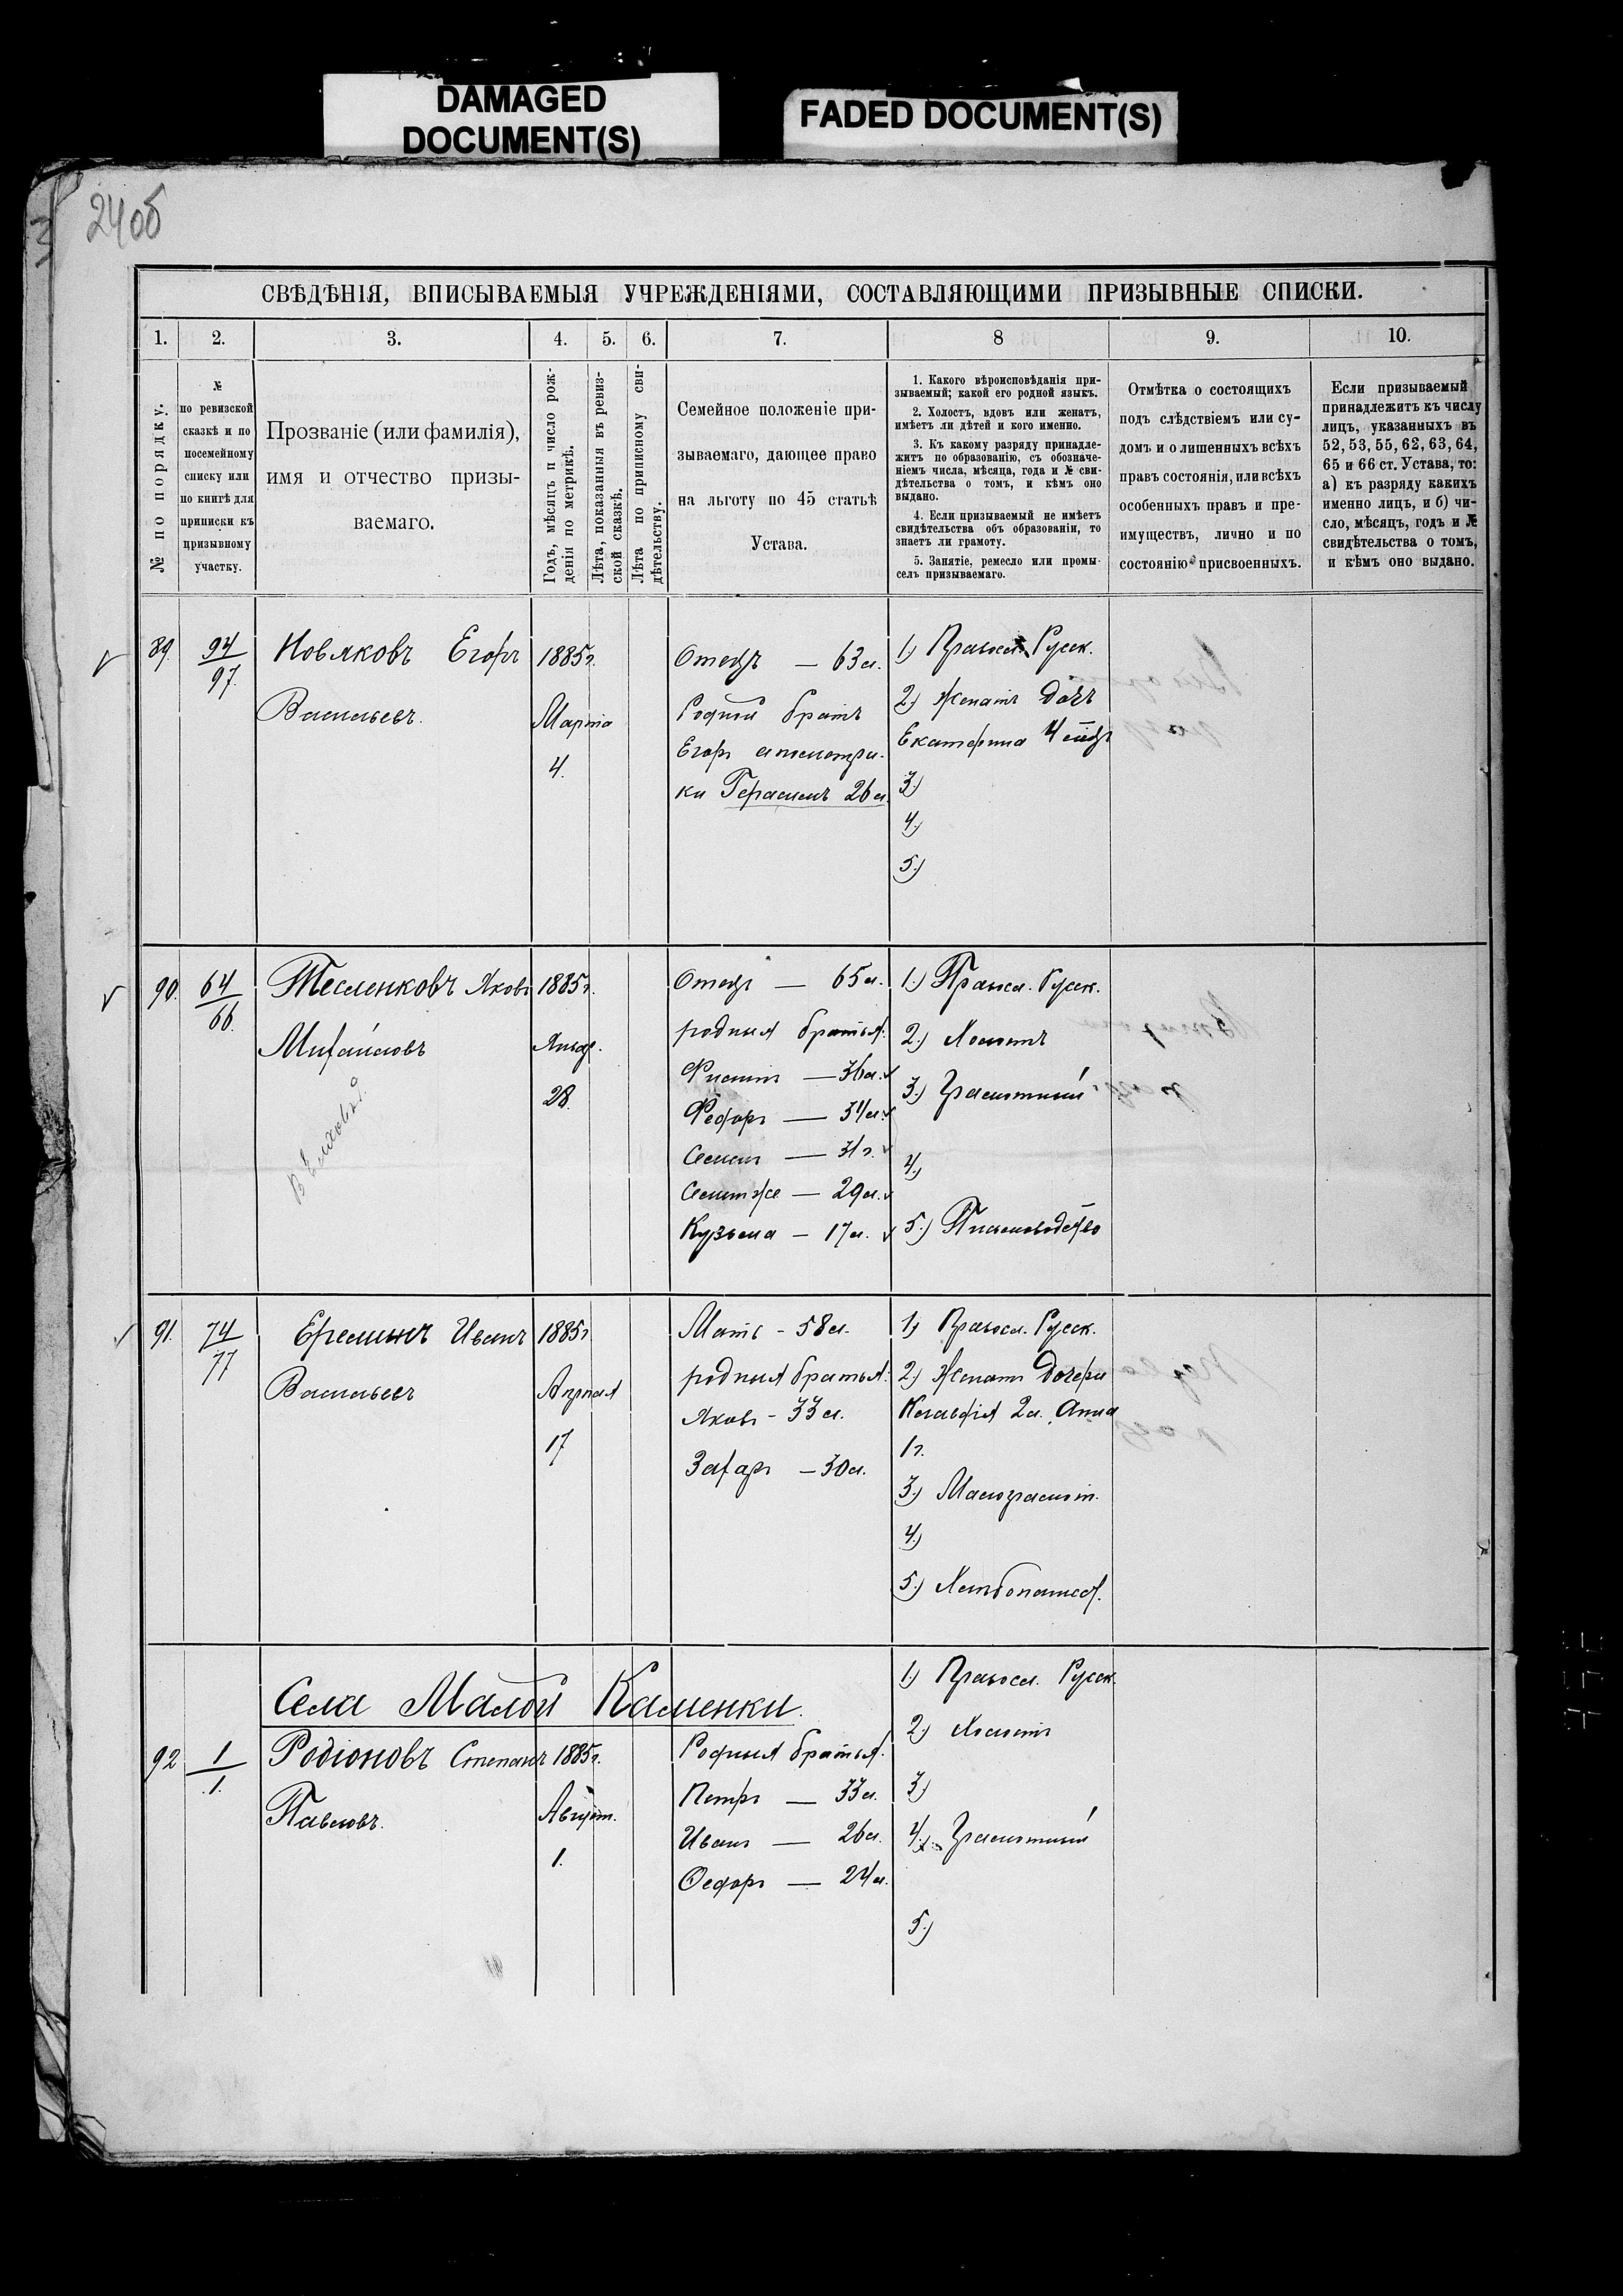 DAMAGED
DOCUMENT(S)
FADED DOCUMENT(S)
24об
СВѢДѢНІЯ, ВПИСЫВАЕМЫЯ УЧРЕЖДЕНІЯМИ, СОСТАВЛЯЮЩИМИ ПРИЗЫВНЫЕ СПИСКИ.
1. 2. 3. 4. 5. 6. 7. 8 9. 10.
№ по порядку.
№
по ревизской
сказкѣ и по
посемейному
списку или
по книгѣ для
приписки къ
призывному
участку.
Прозваніе (или фамилія),
имя и отчество призы-
ваемаго.
Годъ, мѣсяцъ и число рож-
денія по метрикѣ.
Лѣта, показанныя въ ревиз-
ской сказкѣ.
Лѣта по приписному сви-
дѣтельству.
Семейное положеніе при-
зываемаго, дающее право
на льготу по 45 статьѣ
Устава.
1. Какого вѣроисповѣданія при-
зываемый; какой его родной языкъ.
2. Холостъ, вдовъ или женатъ,
имѣетъ ли дѣтей и кого именно.
3. Къ какому разряду принадле-
житъ по образованію, съ обозначе-
ніемъ числа, мѣсяца, года и № сви-
дѣтельства о томъ, и кѣмъ оно
выдано.
4. Если призываемый не имѣетъ
свидѣтельства объ образованіи, то
знаетъ ли грамоту.
5. Занятіе, ремесло или промы-
селъ призываемаго.
Отмѣтка о состоящихъ
подъ слѣдствіемъ или су-
домъ и о лишенныхъ всѣхъ
правъ состоянія, или всѣхъ
особенныхъ правъ и пре-
имуществъ, лично и по
состоянію присвоенныхъ.
Если призываемый
принадлежитъ къ числу
лицъ, указанныхъ въ
52, 53, 55, 62, 63, 64,
65 и 66 ст. Устава, то:
а) къ разряду какихъ
именно лицъ, и б) чи-
сло, мѣсяцъ, годъ и №
свидѣтельства о томъ,
и кѣмъ оно выдано.
89.
94
97.
Новаковъ Егоръ
Васильевъ.
1885г.
Марта
4.
Отецъ — 63 л.
Родной братъ
Егоръ а по метри-
ки Герасимъ 26 л.
1) Правосл. Русск.
2) Женатъ дочь
Екатерина 4 мѣс
3)
4)
5)
90.
64
66.
Тесленковъ Яковъ
Михайловъ
1885г.
Январ.
28.
Отецъ — 65 л.
родныя братья:
Филипъ — 36 л.
Федоръ — 34 л.
Семенъ — 31 г.
Семенъ же — 29 л.
Кузьма — 17 л.
1) Правосл. Русск.
2) Холостъ
3) Грамотный
4)
5) Письмоводство
91.
74
77
Ереминъ Иванъ
Васильевъ
1885г
Апрѣля
17
Мать - 58 л.
родныя братья:
Яковъ - 33 л.
Захаръ — 30 л.
1) Правосл. Русск.
2) Женатъ дочери
Клавдія 2 л. Анна
1 г.
3) Малограмот.
4)
5) Хлѣбопашест.
Села Малой Каменки.
92
1
1.
Родіоновъ Степанъ
Павловъ.
1885г.
Август.
1.
Родныя братья.
Петръ — 33 л.
Иванъ — 26 л.
Федоръ — 24 л.
1) Правосл. Русск.
2) Холостъ
3)
4) Грамотный
5)